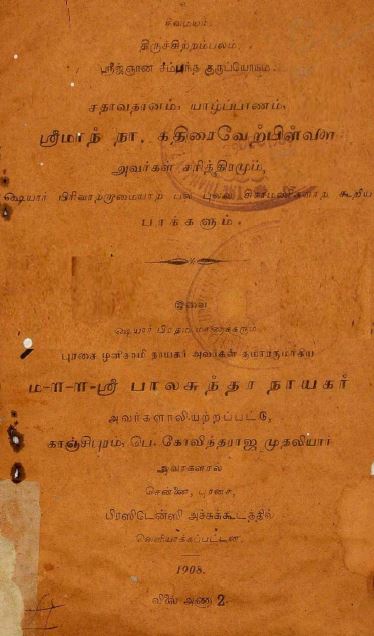 சிவமயம்.
திருச்சிற்றம்பலம்.
ஸ்ரீஞான சம்பந்த குருப்யோநம.
சதாவதானம், யாழ்ப்பாணம்,
ஸ்ரீமாந் நா. கதிரைவேற்பிள்ளை
அவர்கள் சரித்திரமும்,
ஷெயார் பிரிவாற்றாமையாற் பல புலவ சிகாமணிகளாற் கூறிய
பாக்களும்.
இவை
ஷெயார் பிரதம மாணாக்கரும்
புரசை முனிசாமி நாயகர் அவர்கள் குமாரருமாகிய
ம-ள-ள-ஸ்ரீ பாலசுந்தர நாயகர்
அவர்களாலியற்றப்பட்டு,
காஞ்சிபுரம், பெ. கோவிந்தராஜ முதலியார்
அவர்களால்
சென்னை, புரசை,
பிரஸிடென்ஸி அச்சுக்கூடத்தில்
வெளியாக்கப்பட்டன.
1908.
விலை அணா 2.